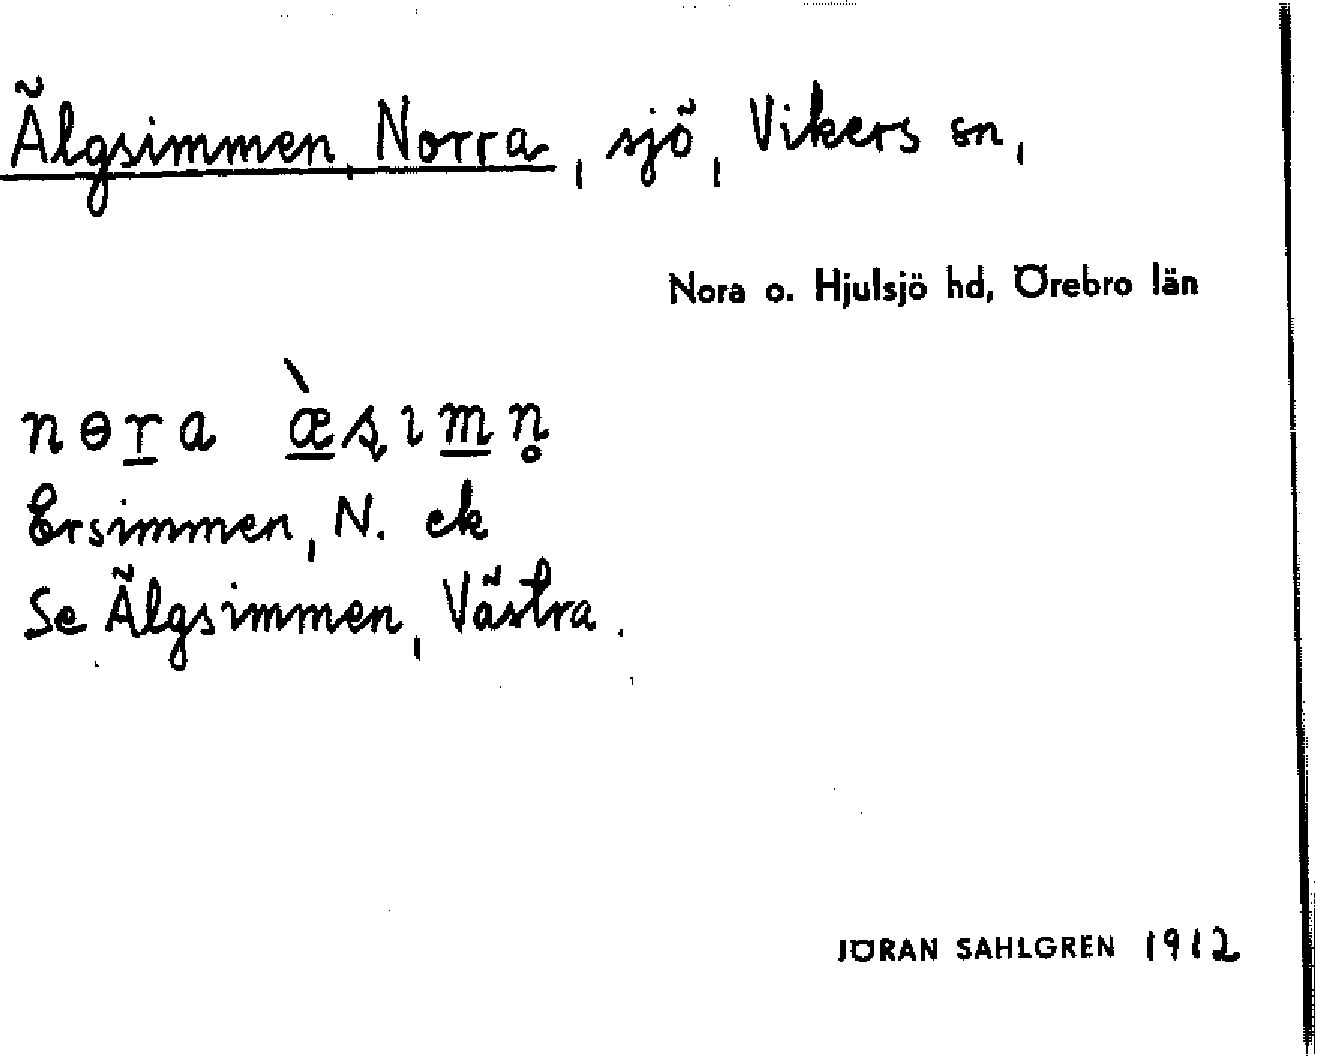 Älgsimmen, Norra, sjö, Vikers sn,
Nora o. Hjulsjö hd, Örebro län
nɵr̲a æ̲̀ʂım̲n̥
Ersimmen, N. ek
Se Älgsimmen, Västra.
JÖRAN SAHLGREN 1912